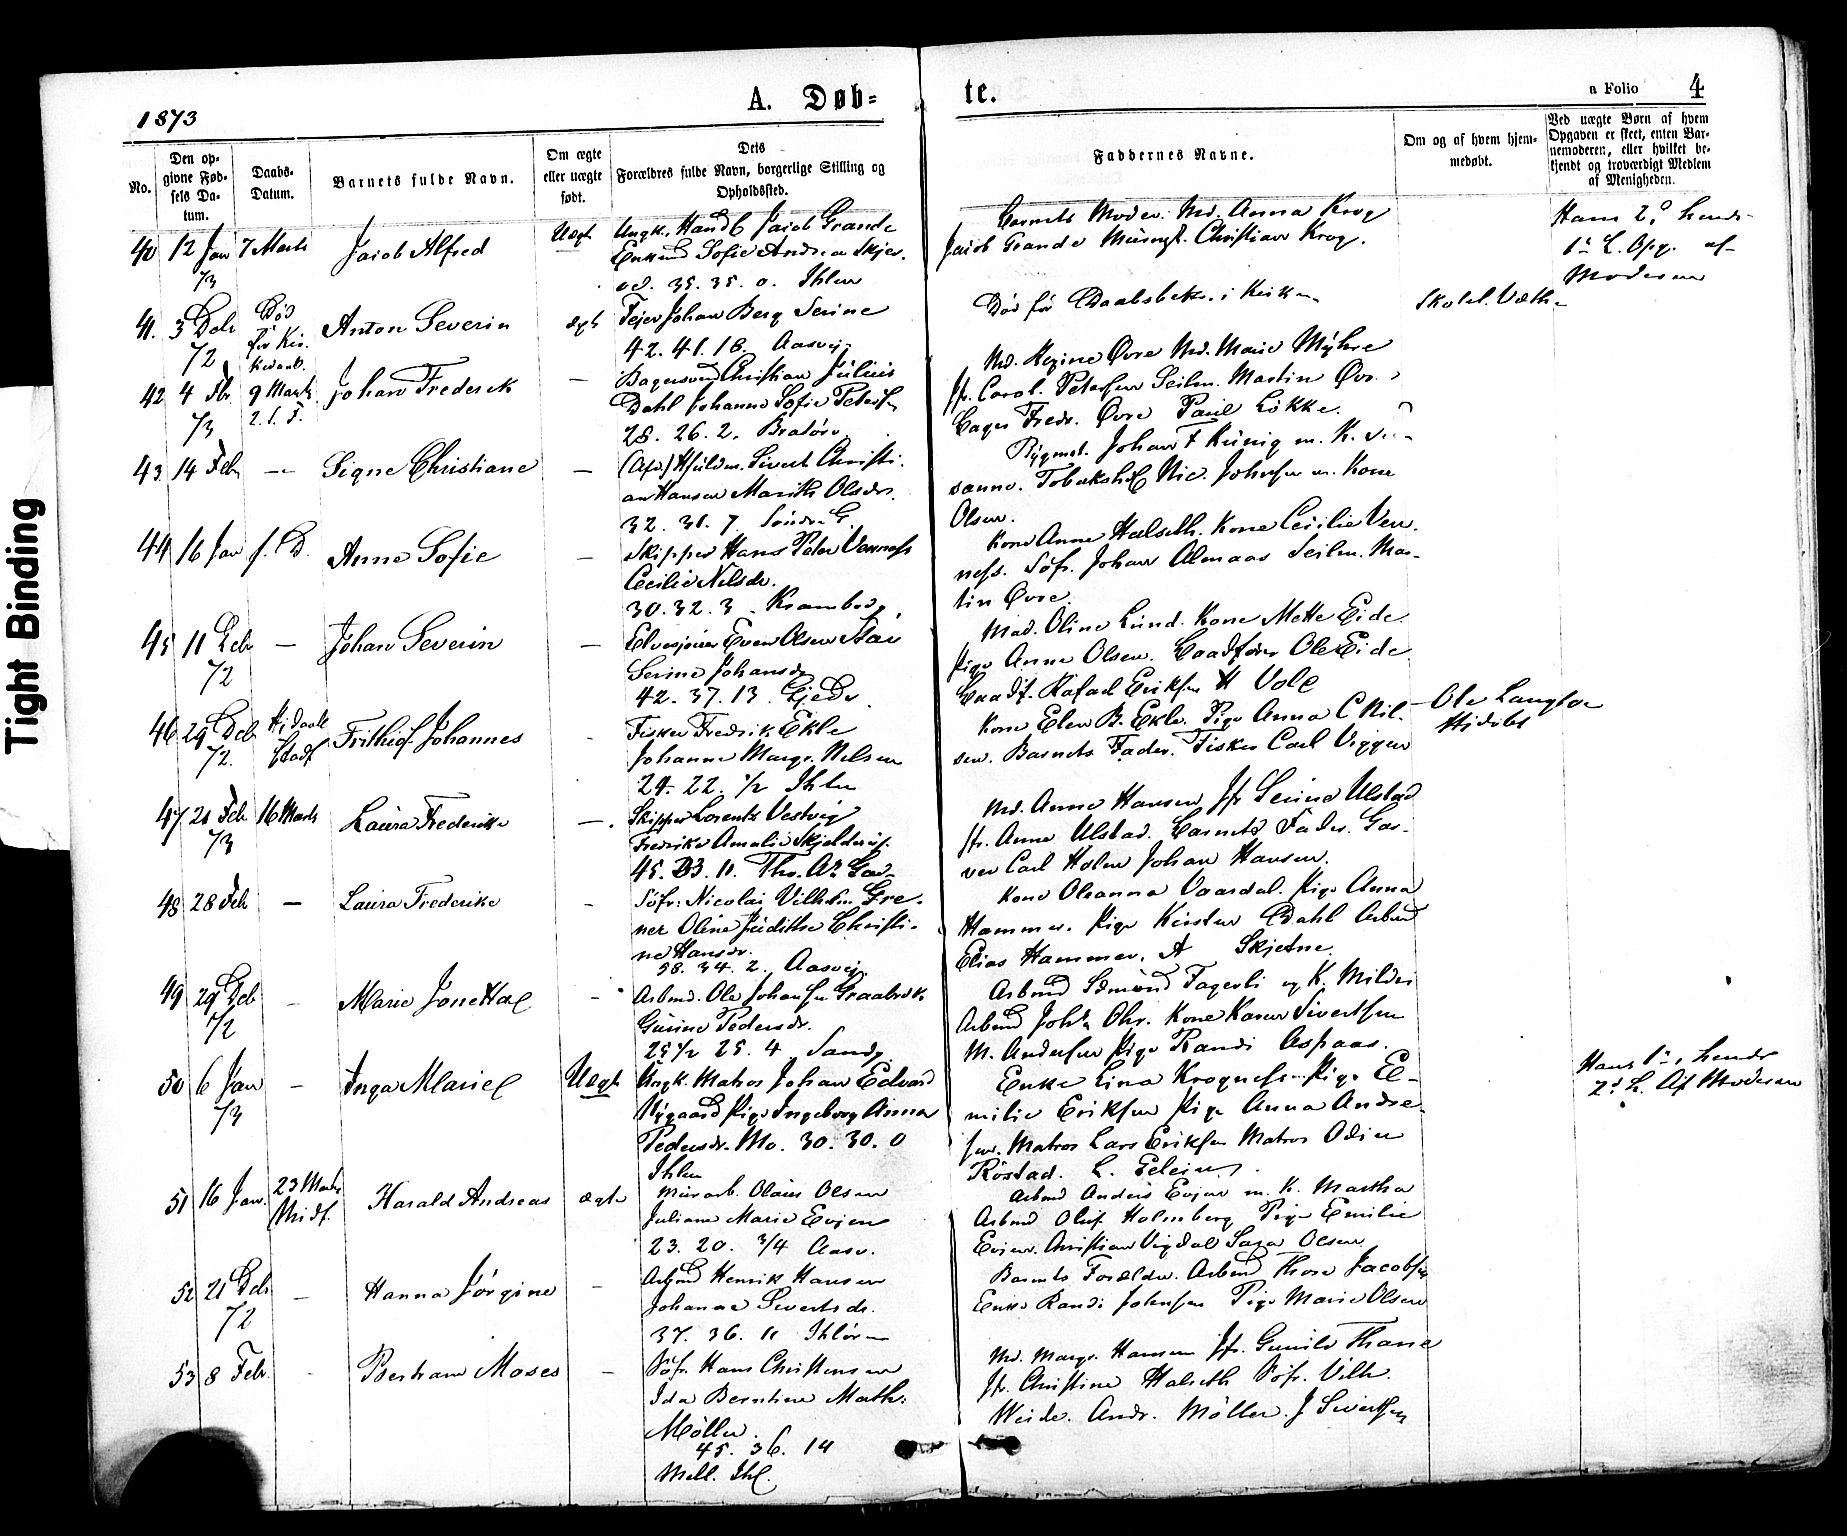 Tight Binding
1873
A. Døb=
te.
a Folio 4
No.
Den op-
givne Fød-
sels Da-
tum.
Daabs-
Datum.
Barnets fulde Navn.
Om ægte
eller uægte
født.
Dets
Forældres fulde Navn, borgerlige Stilling og
Opholdssted.
Faddernes Navne.
Om og af hvem hjem-
medøbt.
Ved uægte Børn af hvem
Opgaven er skeet, enten Bar-
nemoderen, eller hvilket be-
kjendt og troværdigt Medlem
af Menigheden.
40 12 Jan 73 7 Marts Jacob Alfred Uægt
Ungk. Handb Jacob Grande
Enke Sofie
35. 35. 0. Ihlen
Barnets Moder. Md. Anna Krog
Jacob Grande Christian Krog.
Hans 2d
1ste L. Opg. af
Moderen
41. 3 Deb 72 Død før Anton Severin ægte
Fejer Johan Berg Serine
42. 41. 18. Aasvej
Død før Daabsbekr. i Kirken
42 4 Fbr. 73 9 Marts 2. i. F. Johan Frederik —
Bagersvend Christian Julius
Dahl Johanne Sofie Peters
28. 26. 2. Bratøre
Md. Regine Øvre Md. Marie Myhre
fr. Carol. Petersen Seilm. Martin Øvre
Bager Fredr. Øvre Paul Løkke.
43 14 Feb — Signe Christiane —
Sivert Christi-
an Hansen Marith Olsdr.
32. 31. 7 Søndre G.
Bygmst. Johan
Tobakshdl Nic. Johnsen m. Kone
Olsen.
44 16 Jan f. D. Anne Sofie —
Skipper Hans Peter Venness
Cecilie Nilsdr.
30. 32. 3 Krambodg.
Kone Anne Halseth. Kone Cecilie Ven-
ness. Söfr. Johan Almaas Seilm. Mar-
tin Øvre.
45 11 Deb 72 — Johan Severin —
Even Olsen
Serine Johansdr
42. 37. 13. Gjedv.
Mad. Oline Lund. Kone Mette Eide.
Pige Anna Olsen. Baadfører Ole Eide
Baadf. Rafael Eriksen
46 29 Deb 72. Hjdaab Stadf Frithiof Johannes
Fisker Fredrik Ekle
Johanne Margr. Nilsen
24. 22. 1/2 Ihlen
Kone Elen B. Ekle. Pige Anna C Nil-
sen. Barnets Fader. Fisker Carl Viggen
Ole Langløe
Hjdøbt
47 21 Feb 73 16 Marts Laura Frederikke —
Skipper Lorents Vestvig
Fredrike Amalie Skjelderup.
45. 33. 11. Ths. As Gad
Md. Anne Hansen Jfr Serine Ulstad
fr. Anne Ulstad. Barnets Fader. Gar-
ver Carl Holm Johan Hansen.
48 28 Feb — Laura Frederike
Söfr. Nicolai Vilhelm Gre-
ner Oline Judithe Christi-
ne Hansdr.
58. 34. 2. Aasvej.
Kone Oleanna Vaardal. Pige Anna
Hammer. Pige Kirsten Dahl Arbmd
Elias Hammer. A Skjetne.
49 29 Deb 72 — Marie Jonetta —
Arbmd. Ole Johansen Graabrek.
Gurine Pedersdr.
25 1/2 25. 4 Sandg
Arbmd Edmund Fagerli og K. Milde
Arbmd Johs Ohr. Kone Karen Sivertsen
M. Andersen Pige Randi Aspaas.
50 6 Jan 73 — Inga Marie Uægte
Ungk. Matros Johan Edvard
Nygaard Pige Ingeborg Anna
Pedersdr. Mo. 30. 30. 0
Ihlen
Enke Lina Krogness Pige E-
milie Eriksen Pige Anna Andre-
sen. Matros Lars Eriksen Matros Odin
Röstad.
Hans 1ste
2d L. Af Moderen
51 16 Jan. 23 Marts Midf. Harald Andreas ægte
Murarb. Olaus Olsen
Juliane Marie Evjen
23. 20. 3/4 Aasv.
Arbmd Anders Evjen m. K. Martha
Arbmd Oluf Holmberg Pige Emilie
Evjen. Christian Vigdal Sara Olsen
52 21 Deb 72 — Hanna Jørgine —
Arbmd Henrik Hansen
Johanne Sivertsdr.
37. 36. 11 Ihlören
Barnets Forældre. Arbmd Thore Jacobsen
Enke Randi Johnsen Pige Marie Olsen
53 8 Febr. Bertram Moses —
Söfr. Hans Christensen
Ida Berntine Math.
Möller.
45. 36. 14
Mell. Ihl.
Md. Margr. Hansen Jfr. Gunild Thane
fr. Christine Halseth Söfr. Vilh.
Weide. Andr. Möller. J Sivertsen